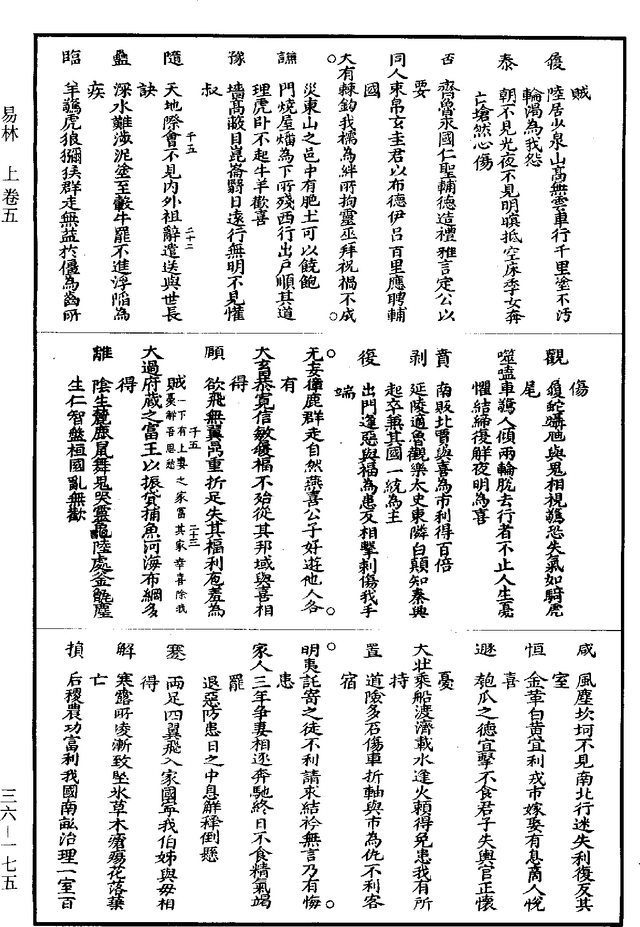 賊
復 陸居少泉山高無雲車行千里塗不污
輪渴為我怨
泰 朝不見光夜不見明暝抵空床季女奔
亡愴然心傷
否 齊魯永國仁聖輔德造禮雅言定公以
要
同人束帛玄圭君以布德伊呂百里應聘輔
國
大有棘鈎我襦為絆所拘靈巫拜祝禍不成
災東山之邑中有肥土可以饒飽
謙 門燒屋燔為下所殘西行出戶順其道
理虎卧不起牛羊歡喜
豫 墻高蔽目崑崙翳日遠行無明不見懽
叔
千五 二十二
隨 天地際會不見內外祖辭遣送與世長
訣
蠱 深水難涉泥塗至轂牛罷不進浮陷為
疾
臨 羊驚虎狼獼猴群走無益於僵為齒所
傷
觀 蝮蛇螭虺與鬼相視驚恐失氣如騎虎
尾
噬嗑車驚人傾兩輪脫去行者不止人生憂
懼結締復解夜明為喜
賁 南販北賈與喜為市利得百倍
剥 延陵適魯觀樂太史東隣白顛知秦興
起卒兼其國一統為主
復 出門逢惡與福為患更相擊刺傷我手
端
无妄僮鹿群走自然燕喜公子好遊他人各
有
大畜恭寬信敏履福不殆從其邦域與喜相
得
千五 二十三
頤 欲飛無翼鼎重折足失其福利庖羞為
賊一下有上妻之家富其家幸喜除我憂解吾思愁
大過府藏之富王以振貸捕魚河海布網多
得
離 陰生麋鹿鼠舞鬼哭靈龜陸處釜甑塵
生仁智盤桓國亂無歡
咸 風塵坎坷不見南北行迷失利復反其
室
恒 金革白黄宜利戎市嫁娶有息商人悅
喜
遯 匏瓜之德宜擊不食君子失輿官正懷
憂
大壯乘船渡濟載水逢火賴得免患我有所
持
置 道陰多石傷車折軸與市為仇不利客
宿
明夷託寄之徒不利請求結衿無言乃有悔
患
家人三年争妻相逐奔馳終日不食精氣竭
罷
退惡防患日之中息解釋倒懸
蹇 兩足四翼飛入家國寧我伯姊與母相
得
解 寒露所凌漸致堅氷草木瘡瘍花落葉
亡
損 后稷農功富利我國南畝治理一室百
易林 上 卷五
三六一一七五